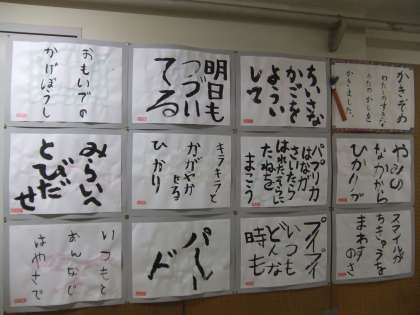 かきぞめ
わたしのすきな
うたのかしを
かきました。
ちいさな
かごを
ようい
して
明日も
つづい
てる
おもいでの
かげぼうし
やみの
なかから
パプリカ
はなが
さいたら
はれたそらに
たねを
まこう
キラキラと
かがやか
せる
ひかり
みらいへ
とびだ
せ
スマイルが
ちきゅうを
まわす
のさ
プイプイ
いつも
どんな
時も
パレー
ド
いつもと
おんなじ
はやさで